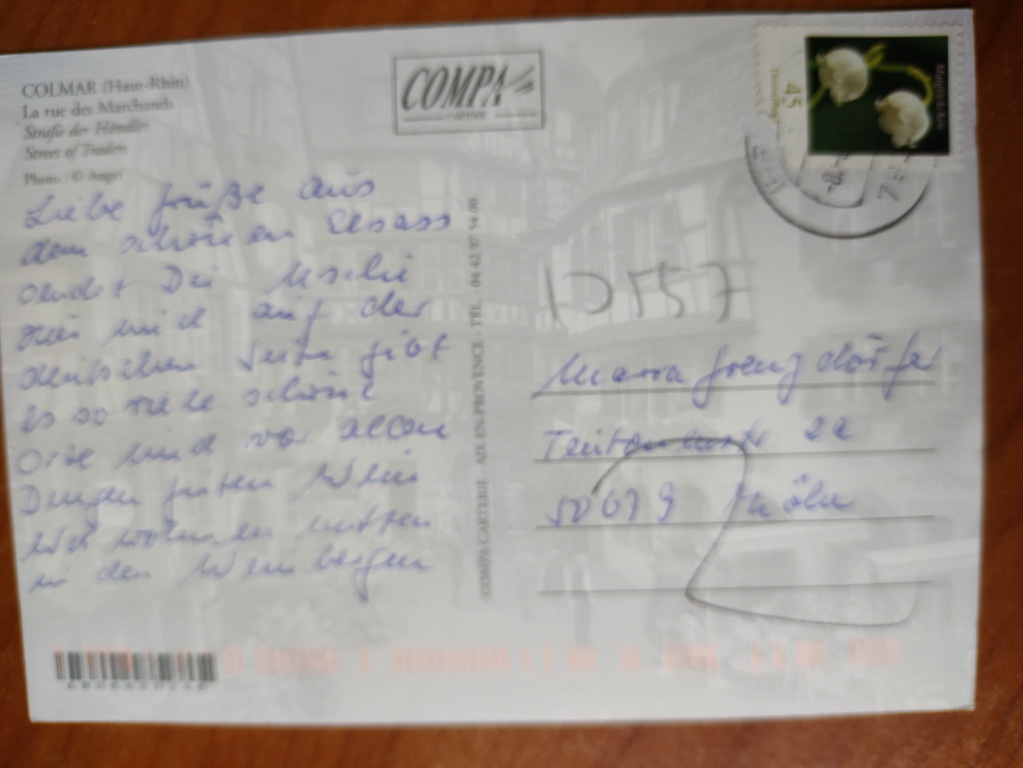 COLMAR (Haut-Rhin)
La rue des Marchands
Straße der Händler
Street of Traders
Photo : © Anger
COMPA
CARTERIE
45
Deutschland
Maiglöckchen
Liebe Grüße aus
dem schönen Elsass
sendet Dir Uschi
Hier und auf der
deutschen Seite gibt
es so viele schöne
Orte und vor allen
Dingen guten Wein
Wir wohnen mitten
in den Weinbergen
COMPA CARTERIE - AIX-EN-PROVENCE - TEL. 04 42 97 94 00
D557
Maria
22
50679 Köln